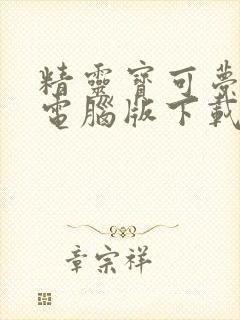 精靈寶可夢
電腦版下載
章宗祥